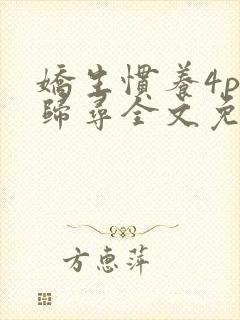 嬌生慣養4p
歸尋全文免
方惠萍